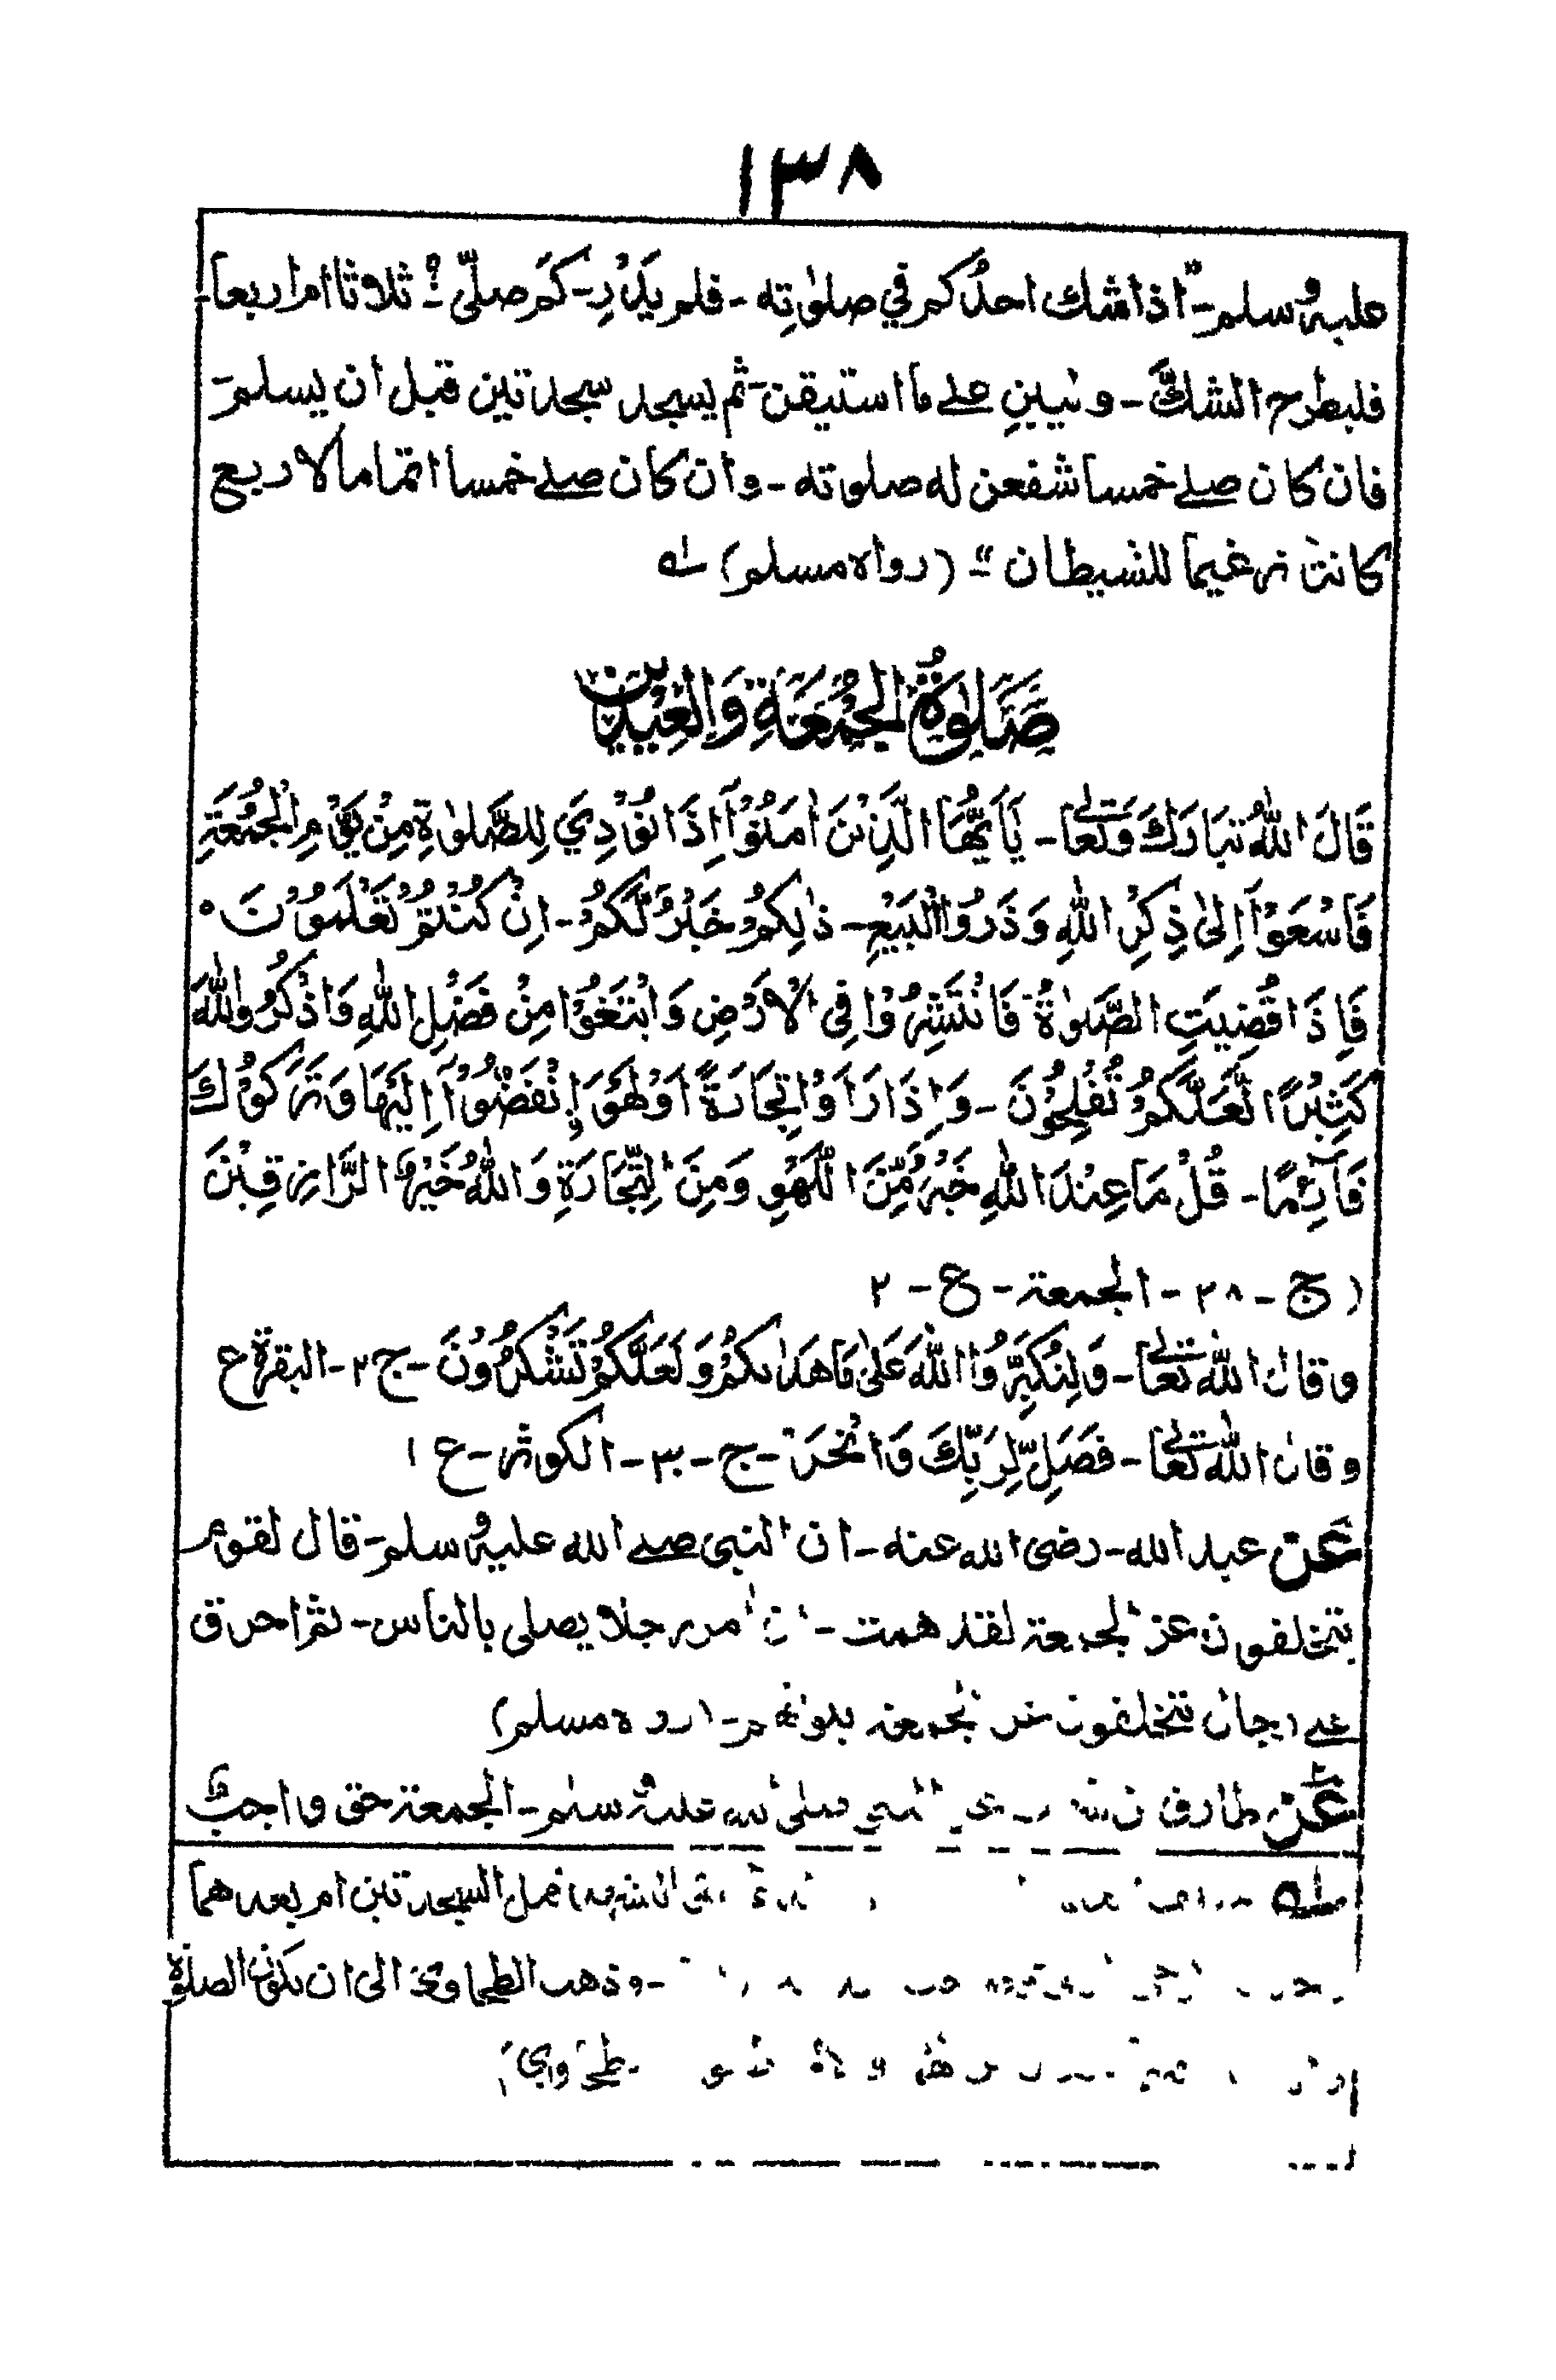 ١٣٨
عليه وسلم - "اذا شك احدكم في صلوٰتِه - فلم يَدْرِ - كَم صلّى؟ - ثلاثا ام اربعا -
فليطرح الشكَّ - وليبنِ على ما استيقن - ثم يسجد سجدتين قبل ان يسلم -
فان كان صلى خمسا شفعن له صلوته - وان كان صلى خمسا اتماما لاربع
كانت ترغيما للشيطان" - (رواه مسلم) له
صَلٰوةُ الجُمُعَةِ وَالعِيدَين
قَالَ اللهُ تَبَارَكَ وَتَعَالٰى - يٰٓاَيُّهَا الَّذِيْنَ اٰمَنُوْٓا اِذَا نُوْدِيَ لِلصَّلٰوةِ مِنْ يَّوْمِ الْجُمُعَةِ
فَاسْعَوْٓا اِلىٰ ذِكْرِ اللهِ وَذَرُوا الْبَيْعِ - ذٰلِكُمْ خَيْرٌ لَّكُمْ - اِنْ كُنْتُمْ تَعْلَمُوْنَ ٥
فَاِذَا قُضِيَتِ الصَّلٰوةُ فَانْتَشِرُوْا فِى الْاَرْضِ وَابْتَغُوْا مِنْ فَضْلِ اللهِ وَاذْكُرُوا اللهَ
كَثِيْرًا لَّعَلَّكُمْ تُفْلِحُوْنَ - وَاِذَا رَاَوْا تِجَارَةً اَوْ لَهْوَا ِانْفَضُّوْٓا اِلَيْهَا وَتَرَكُوْكَ
قَآئِمًا - قُلْ مَا عِنْدَ اللهِ خَيْرٌ مِّنَ اللَّهْوِ وَمِنَ التِّجَارَةِ وَاللهُ خَيْرُ الرَّازِقِيْنَ
(ج - ٢٨ - الجمعة - ع - ٢
وقال اللهُ تَعَالٰى - وَلِتُكَبِّرُوا اللهَ عَلىٰ مَا هَدٰىكُمْ وَلَعَلَّكُمْ تَشْكُرُوْنَ - ج ٢ - البقرة ع
وقال اللهُ تَعَالٰى - فَصَلِّ لِرَبِّكَ وَانْحَرْ - ج - ٣٠ - الكوثر - ع ١
عَن عبد الله - رضى الله عنه - ان النبى صلى الله عليه وسلم - قال لقوم
يتخلفون عن الجمعة لقد هممت - ان آمر رجلا يصلى بالناس - ثم احرق
على رجال يتخلفون عن الجمعة بيوتهم - (رواه مسلم)
عَن طارق بن النبي صلى الله عليه وسلم - الجمعة حق واجب
السجدتين ام بعدهما
- وذهب الطحاوى الى ان يكون الصلوة
طحاوي